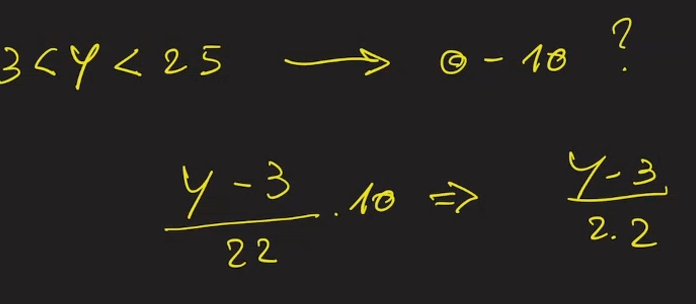 3 < y < 25 → 0 - 10 ?
y - 3 / 22 . 10 ⇒ y - 3 / 2.2